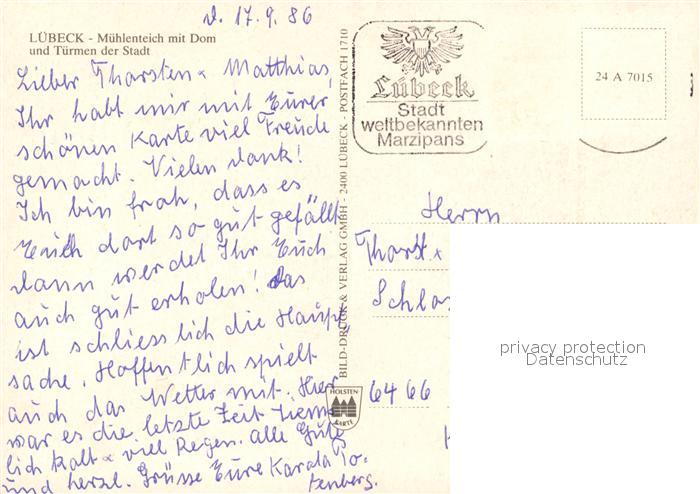 d. 17.9.86
LÜBECK - Mühlenteich mit Dom
und Türmen der Stadt
Lieber Tharsten & Matthias,
Ihr habt mir mit Eurer
schönen Karte viel Freude
gemacht. Vielen Dank!
Ich bin froh, dass es
Euch dort so gut gefällt
dann werdet Ihr Euch
auch gut erholen! Das
ist schliesslich die Haupt
sache. Hoffentlich spielt
auch das Wetter mit. Hier
war es die letzte Zeit ziem
lich kalt & viel Regen. alle Gute
und herzl. Grüsse Eure Karola
BILD-DRUCK & VERLAG GMBH - 2400 LÜBECK - POSTFACH 1710
HOLSTEN
KARTE
Lübeck
Stadt
weltbekannten
Marzipans
24 A 7015
Herrn
Thorst. &
Schlo
6466
privacy protection
Datenschutz